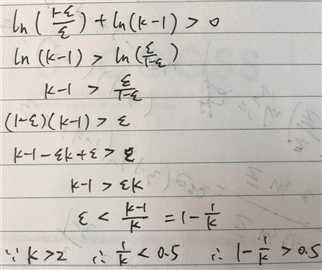 ln(\frac{1-ε}{ε}) + ln(k-1) > 0
ln(k-1) > ln(\frac{ε}{1-ε})
k-1 > \frac{ε}{1-ε}
(1-ε)(k-1) > ε
k-1-εk+ε > ε
k-1 > εk
ε < \frac{k-1}{k} = 1-\frac{1}{k}
∵ k>2 ∴ \frac{1}{k} < 0.5 ∴ 1-\frac{1}{k} > 0.5